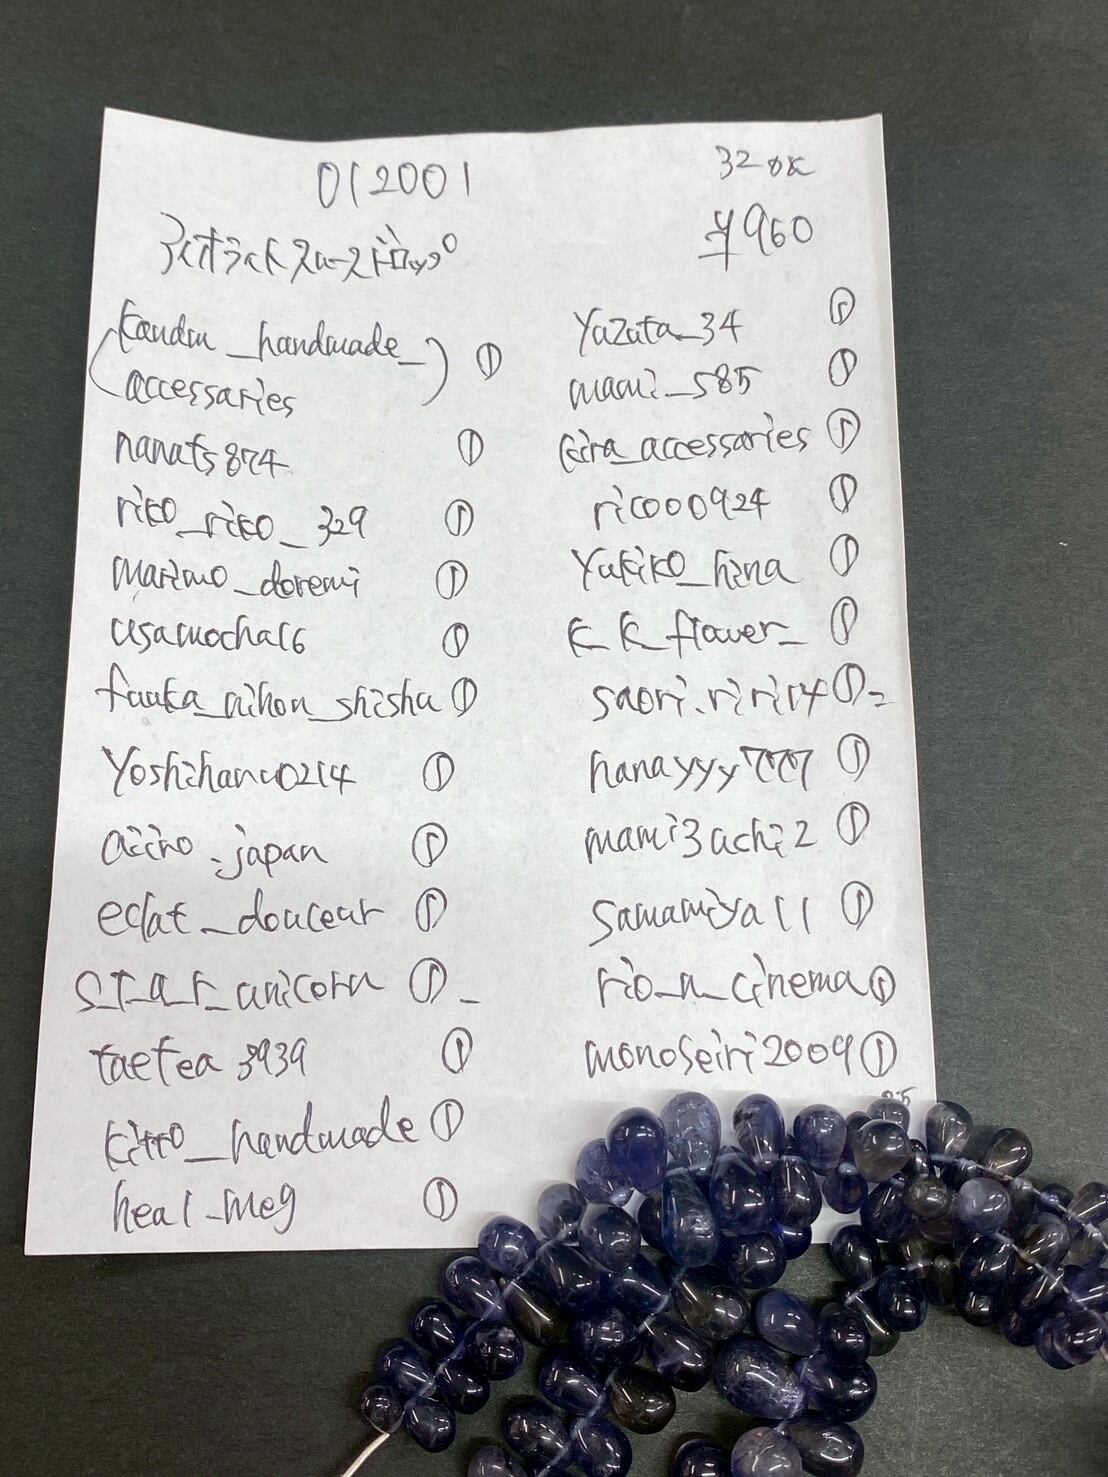 012001
32 OK
アイオライトスムースドロップ
¥960
handmade_
accessaries ①
nanats874 ①
riko_riko_329 ①
marimo_doremi ①
usamocha16 ①
fuuka_nihon_shisha ①
①
aiiro.japan ①
eclat_douceur ①
s_t_a_r_unicorn ①_
taetea3939 ①
kitto_handmade ①
heal_meg ①
yazata_34 ①
mami_585 ①
kira_accessaries ①
rico00924 ①
yukiko_hina ①
k_k_flower_ ①
saori.riri14 ①=
hanayyy777 ①
mami3achi2 ①
samamiya11 ①
rio_n_cinema ①
monoseiri2009 ①
25